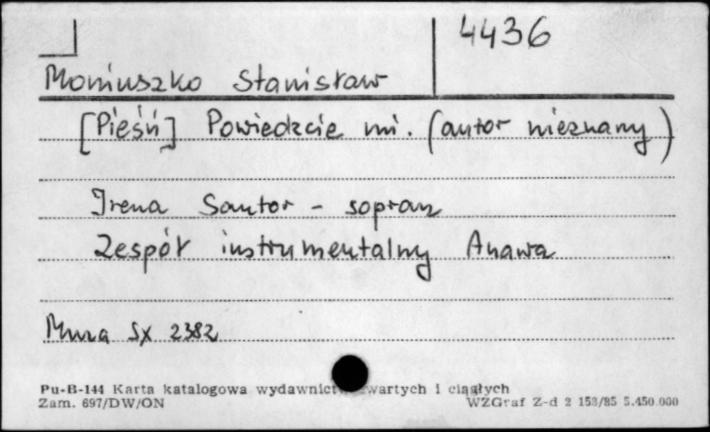 4436
Moniuszko Stanisław
[Pieśń] Powiedzcie mi. (autor nieznany)
Irena Santor - sopran
Zespół instrumentalny Anawa
Muza SX 2382
Pu-B-144 Karta katalogowa wydawnictw zwartych i ciągłych
Zam. 697/DW/ON WZGraf Z-d 2 153/85 5.450.000